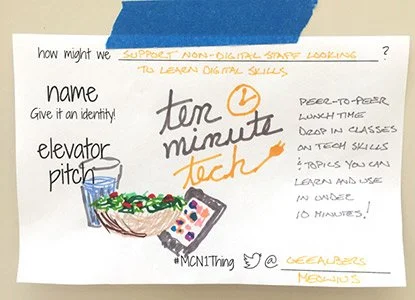 how might we SUPPORT NON-DIGITAL STAFF LOOKING ?
TO LEARN DIGITAL SKILLS
name
Give it an identity!
elevator
pitch
ten
minute
tech
PEER-TO-PEER
LUNCH TIME
DROP IN CLASSES
ON TECH SKILLS
& TOPICS YOU CAN
LEARN AND USE
IN UNDER
10 MINUTES!
#MCN1Thing @ GEEALBERS
MEOWIUS